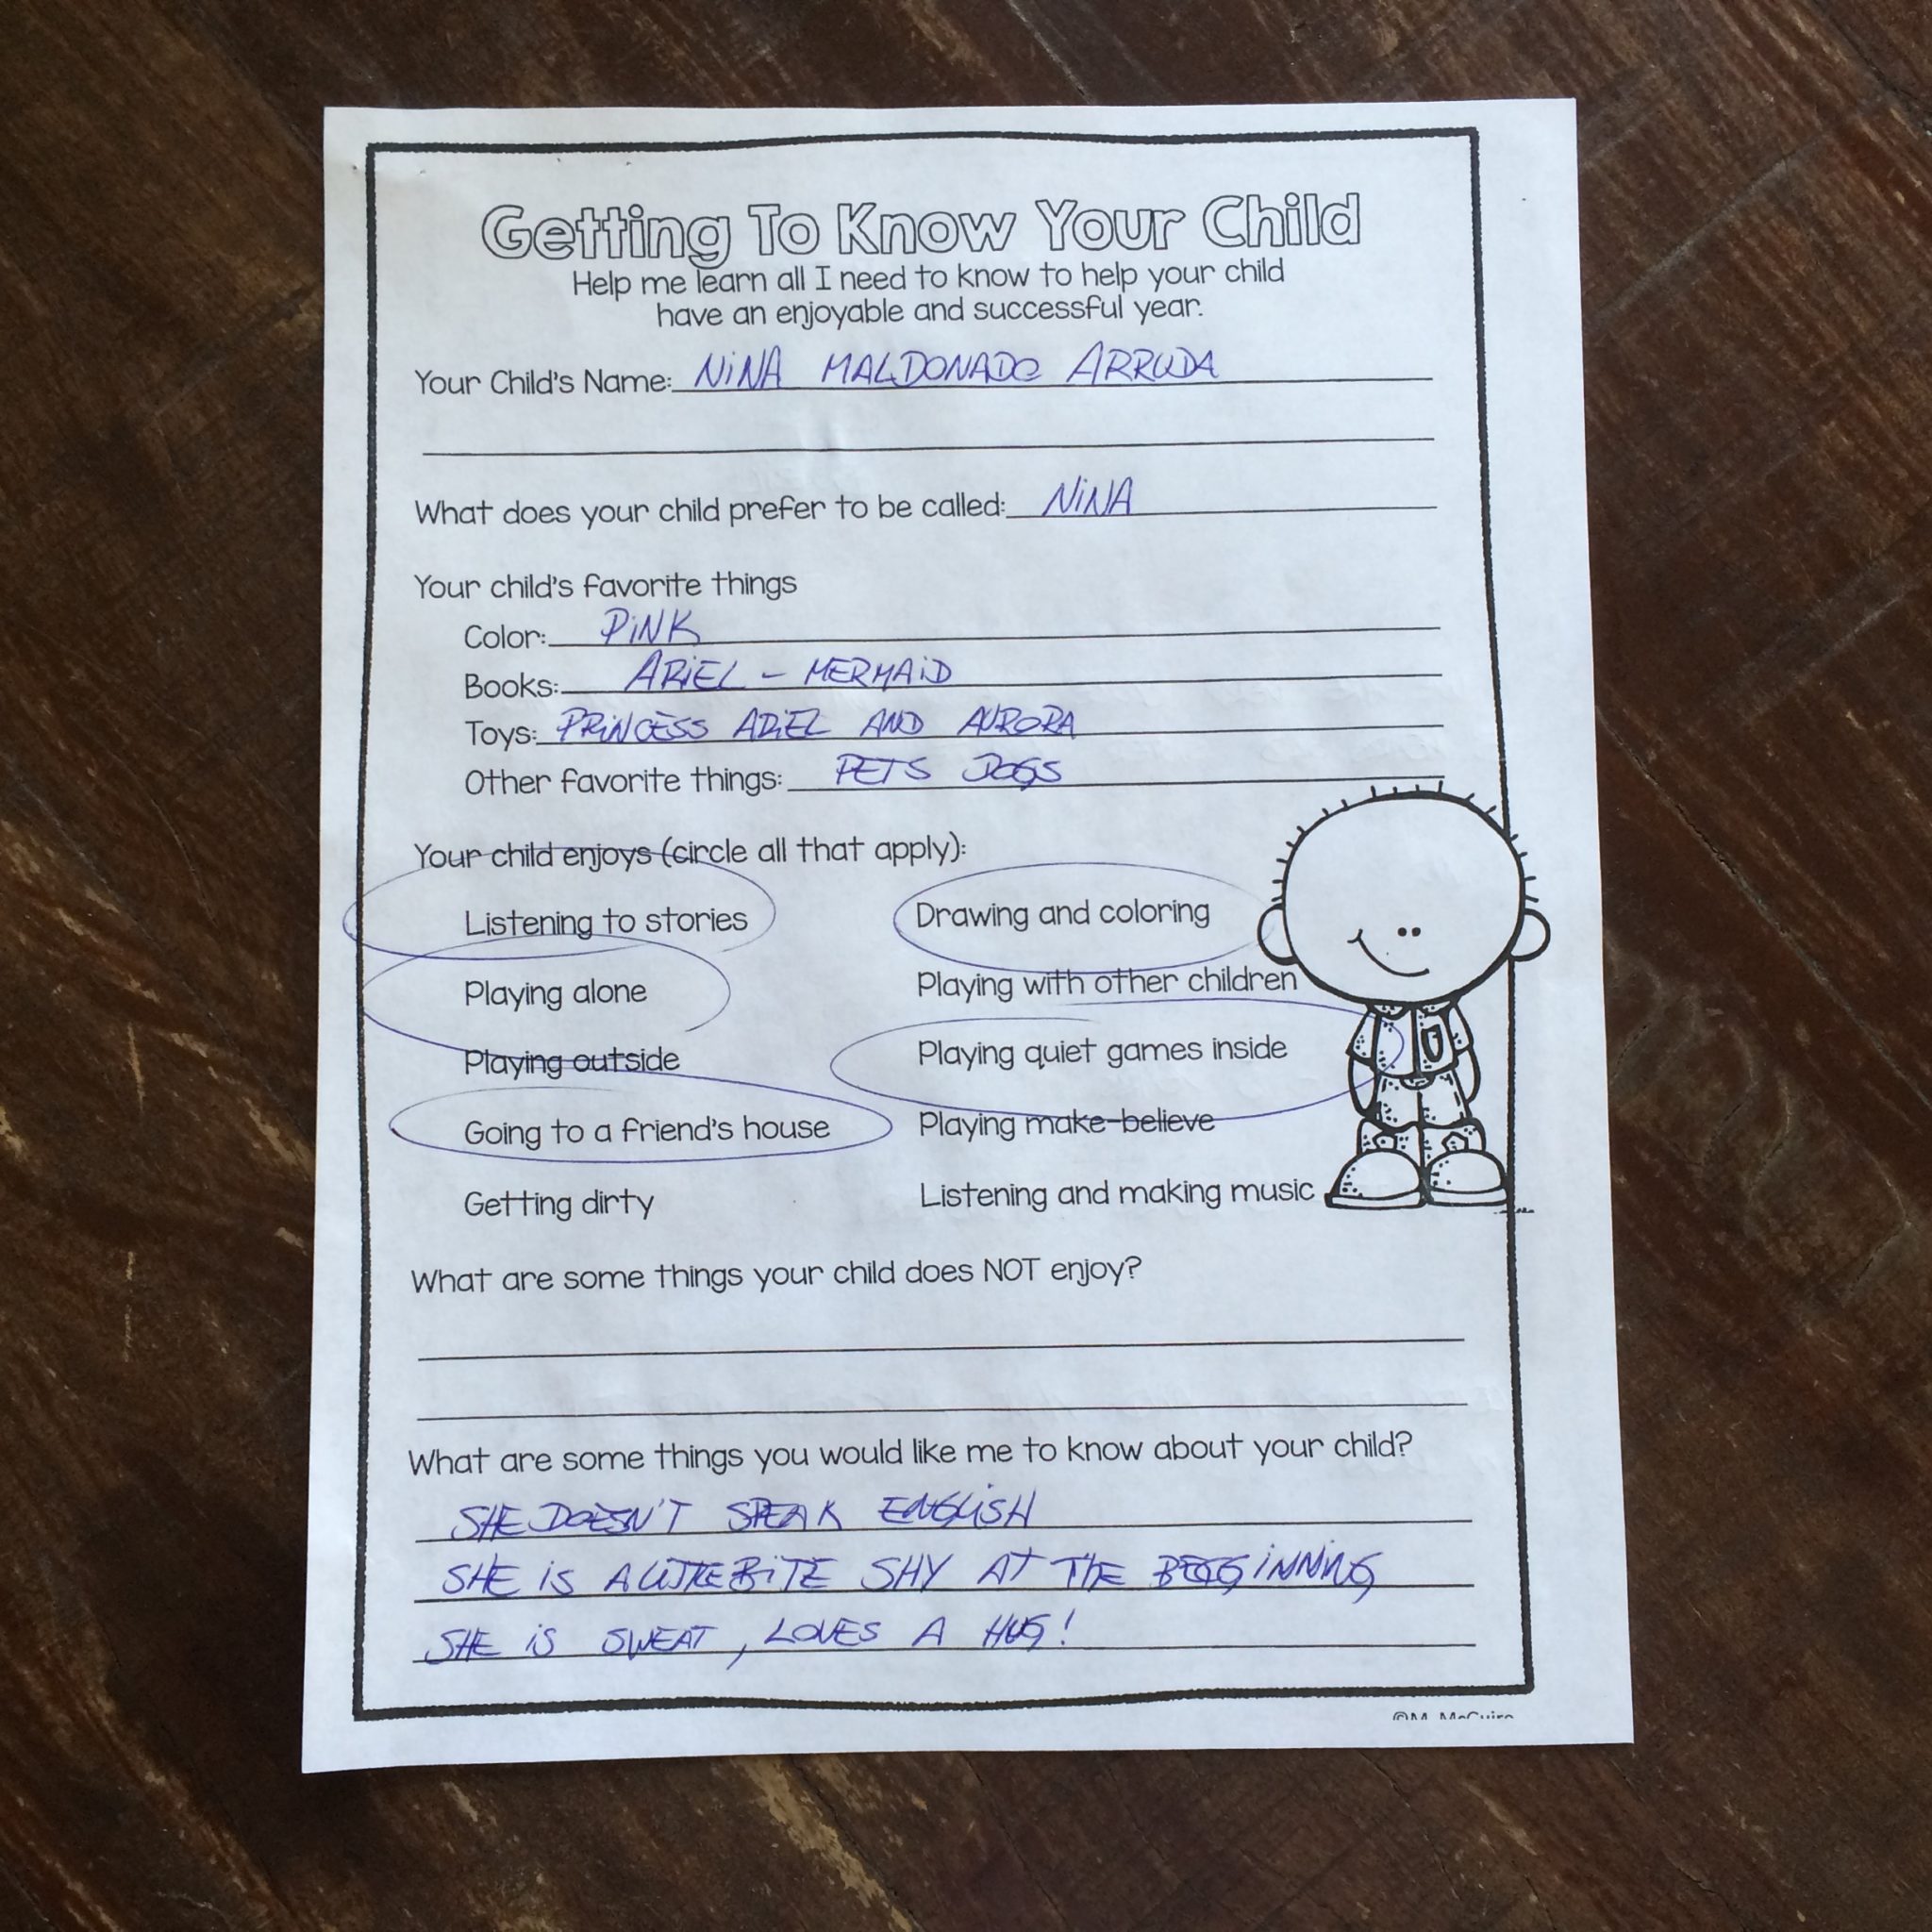 Getting To Know Your Child
Help me learn all I need to know to help your child
have an enjoyable and successful year.
Your Child's Name: NiNA MALDONADO ARRUDA
What does your child prefer to be called: NiNA
Your child's favorite things
Color: PiNK
Books: ARiEL - MERMAiD
Toys: PRiNCESS ARiEL AND AURORA
Other favorite things: PETS DOGS
Your child enjoys (circle all that apply):
Listening to stories Drawing and coloring
Playing alone Playing with other children
Playing outside Playing quiet games inside
Going to a friend's house Playing make-believe
Getting dirty Listening and making music
What are some things your child does NOT enjoy?
What are some things you would like me to know about your child?
SHE DOESN'T SPEAK ENGLiSH
SHE iS A LITTLE BiTE SHY AT THE BEGGiNNiNG
SHE iS SWEAT, LOVES A HUG!
©M. McGuire